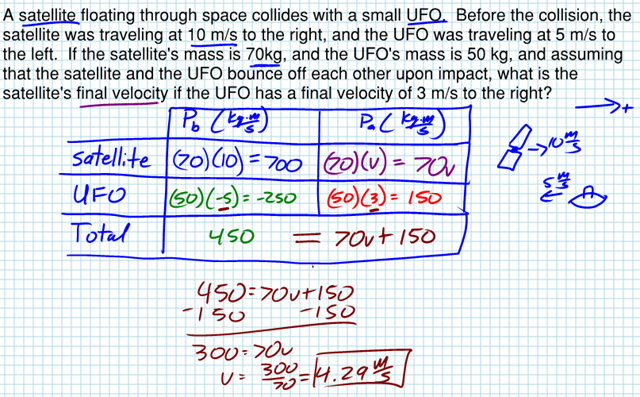 A satellite floating through space collides with a small UFO. Before the collision, the
satellite was traveling at 10 m/s to the right, and the UFO was traveling at 5 m/s to
the left. If the satellite's mass is 70kg, and the UFO's mass is 50 kg, and assuming
that the satellite and the UFO bounce off each other upon impact, what is the
satellite's final velocity if the UFO has a final velocity of 3 m/s to the right?
→+
P_b (kg·m/s) P_a (kg·m/s)
satellite (70)(10) = 700 (70)(v) = 70v
→10 m/s
UFO (50)(-5) = -250 (50)(3) = 150
5 m/s
Total 450 = 70v + 150
450 = 70v + 150
-150 -150
300 = 70v
v = 300/70 = 4.29 m/s